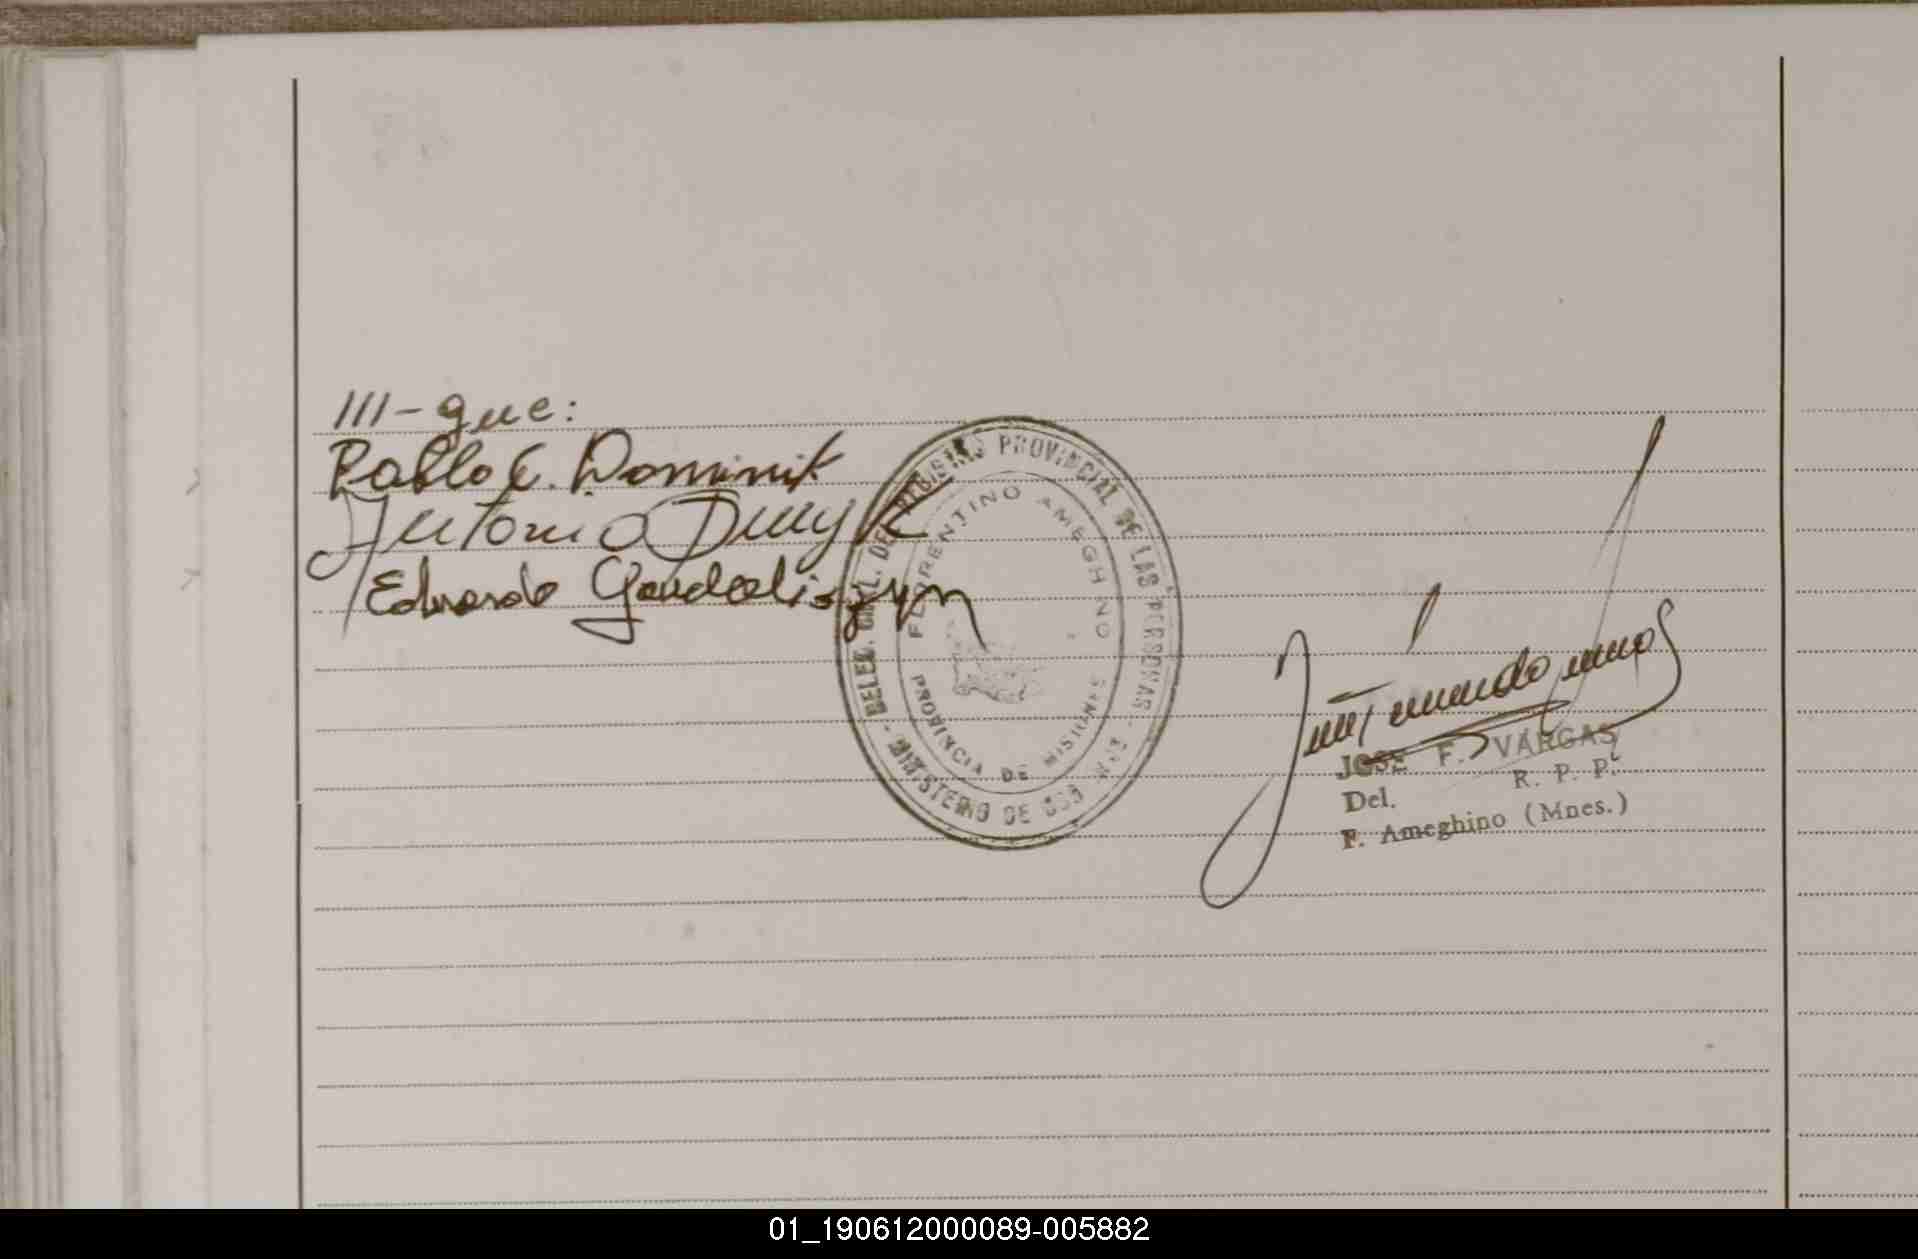 III-que:
Pablo C. Dominik
Antonio
Eduardo
DELEG. CIVIL. DEL REGISTRO PROVINCIAL DE LAS PERSONAS
MINISTERIO DE GOB
FLORENTINO AMEGHINO
PROVINCIA DE MISIONES
JOSE F. VARGAS
Del. R. P. P.
F. Ameghino (Mnes.)
01_190612000089-005882